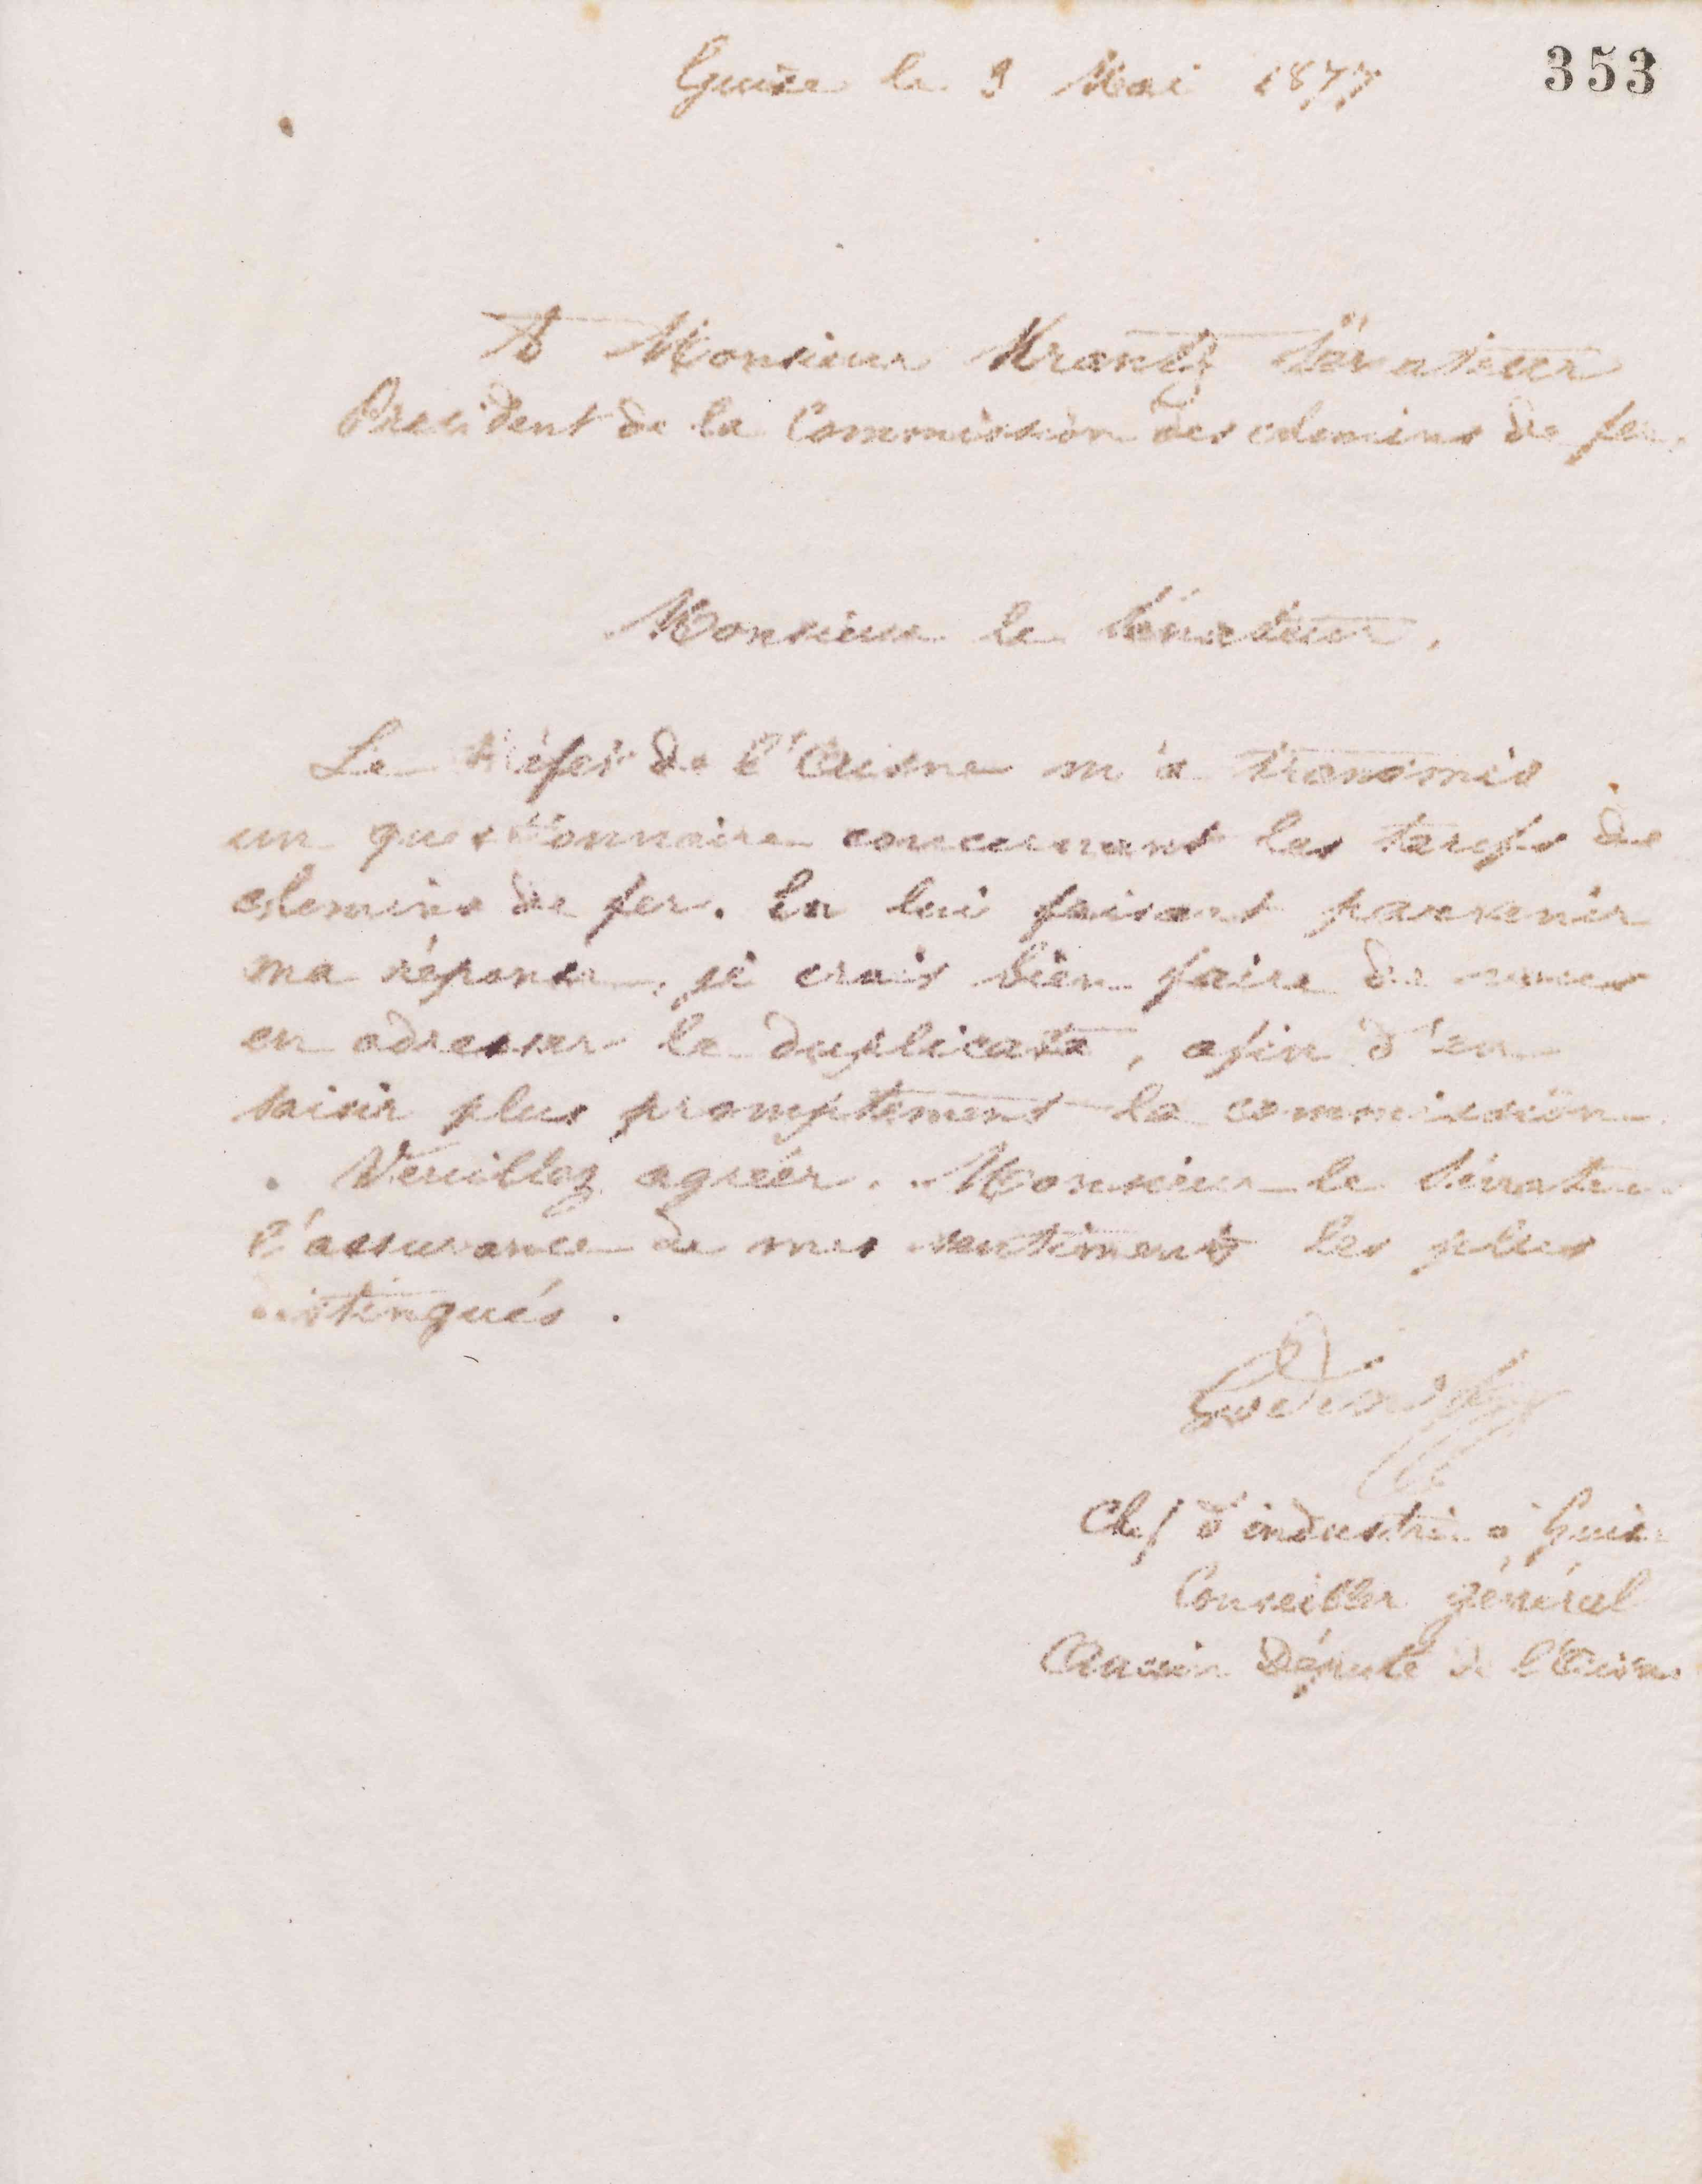 353
Guise le 9 Mai 1877
A Monsieur Krantz Sénateur
President de la Commission des chemins de fer.
Monsieur le Sénateur,
Le Préfet de l'Aisne m'a transmis
un questionnaire concernant les tarifs de
chemins de fer. En lui faisant parvenir
ma réponse, je crois bien faire de vous
en adresser le duplicata, afin d'en
saisir plus promptement la commission
Veuillez agréer, Monsieur le Sénateur
l'assurance de mes sentiments les plus
distingués.
Godin
Chef d'industrie à Guise
Conseiller général
Ancien Député de l'Aisne